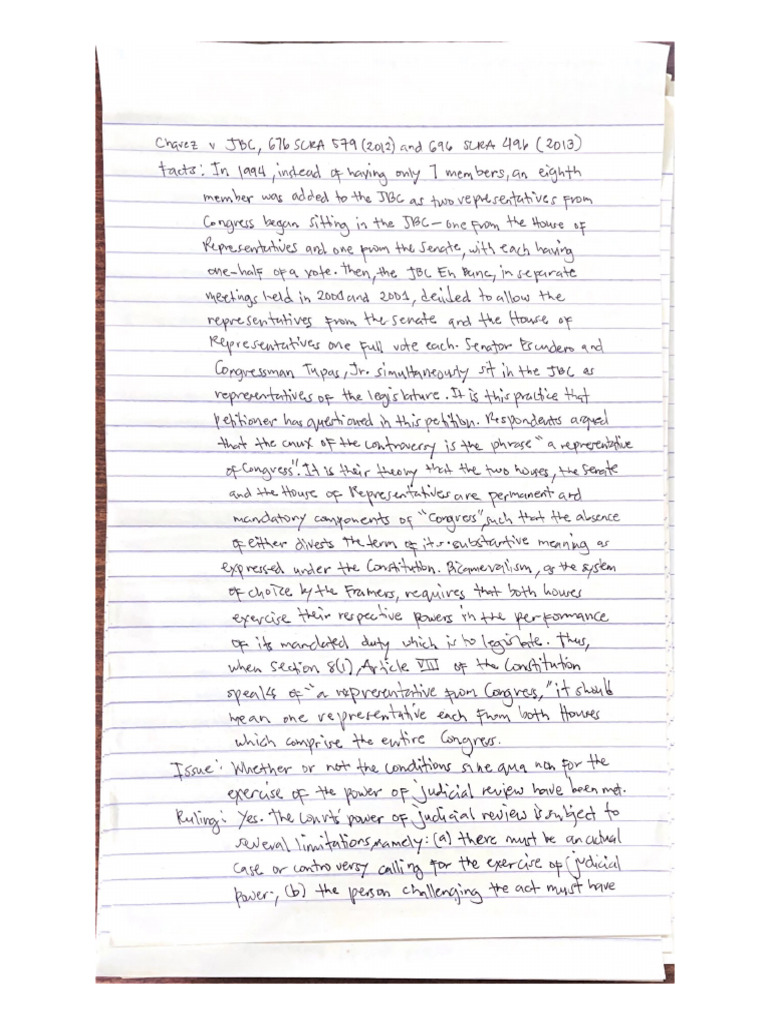 Chavez v JBC, 676 SCRA 579 (2012) and 696 SCRA 496 (2013)
Facts: In 1994, instead of having only 7 members, an eighth
member was added to the JBC as two representatives from
Congress began sitting in the JBC – one from the House of
Representatives and one from the Senate, with each having
one-half of a vote. Then, the JBC En Banc, in separate
meetings held in 2000 and 2001, decided to allow the
representatives from the Senate and the House of
Representatives one full vote each. Senator Escudero and
Congressman Tupas, Jr. simultaneously sit in the JBC as
representatives of the legislature. It is this practice that
petitioner has questioned in this petition. Respondents argued
that the crux of the controversy is the phrase "a representative
of Congress". It is their theory that the two houses, the Senate
and the House of Representatives are permanent and
mandatory components of "Congress", such that the absence
of either diverts the term of its substantive meaning as
expressed under the Constitution. Bicameralism, as the system
of choice by the Framers, requires that both houses
exercise their respective powers in the performance
of its mandated duty which is to legislate. Thus,
when Section 8(1), Article VIII of the Constitution
speaks of "a representative from Congress," it should
mean one representative each from both Houses
which comprise the entire Congress.
Issue: Whether or not the conditions sine qua non for the
exercise of the power of judicial review have been met.
Ruling: Yes. The Courts' power of judicial review is subject to
several limitations, namely: (a) there must be an actual
case or controversy calling for the exercise of judicial
power; (b) the person challenging the act must have